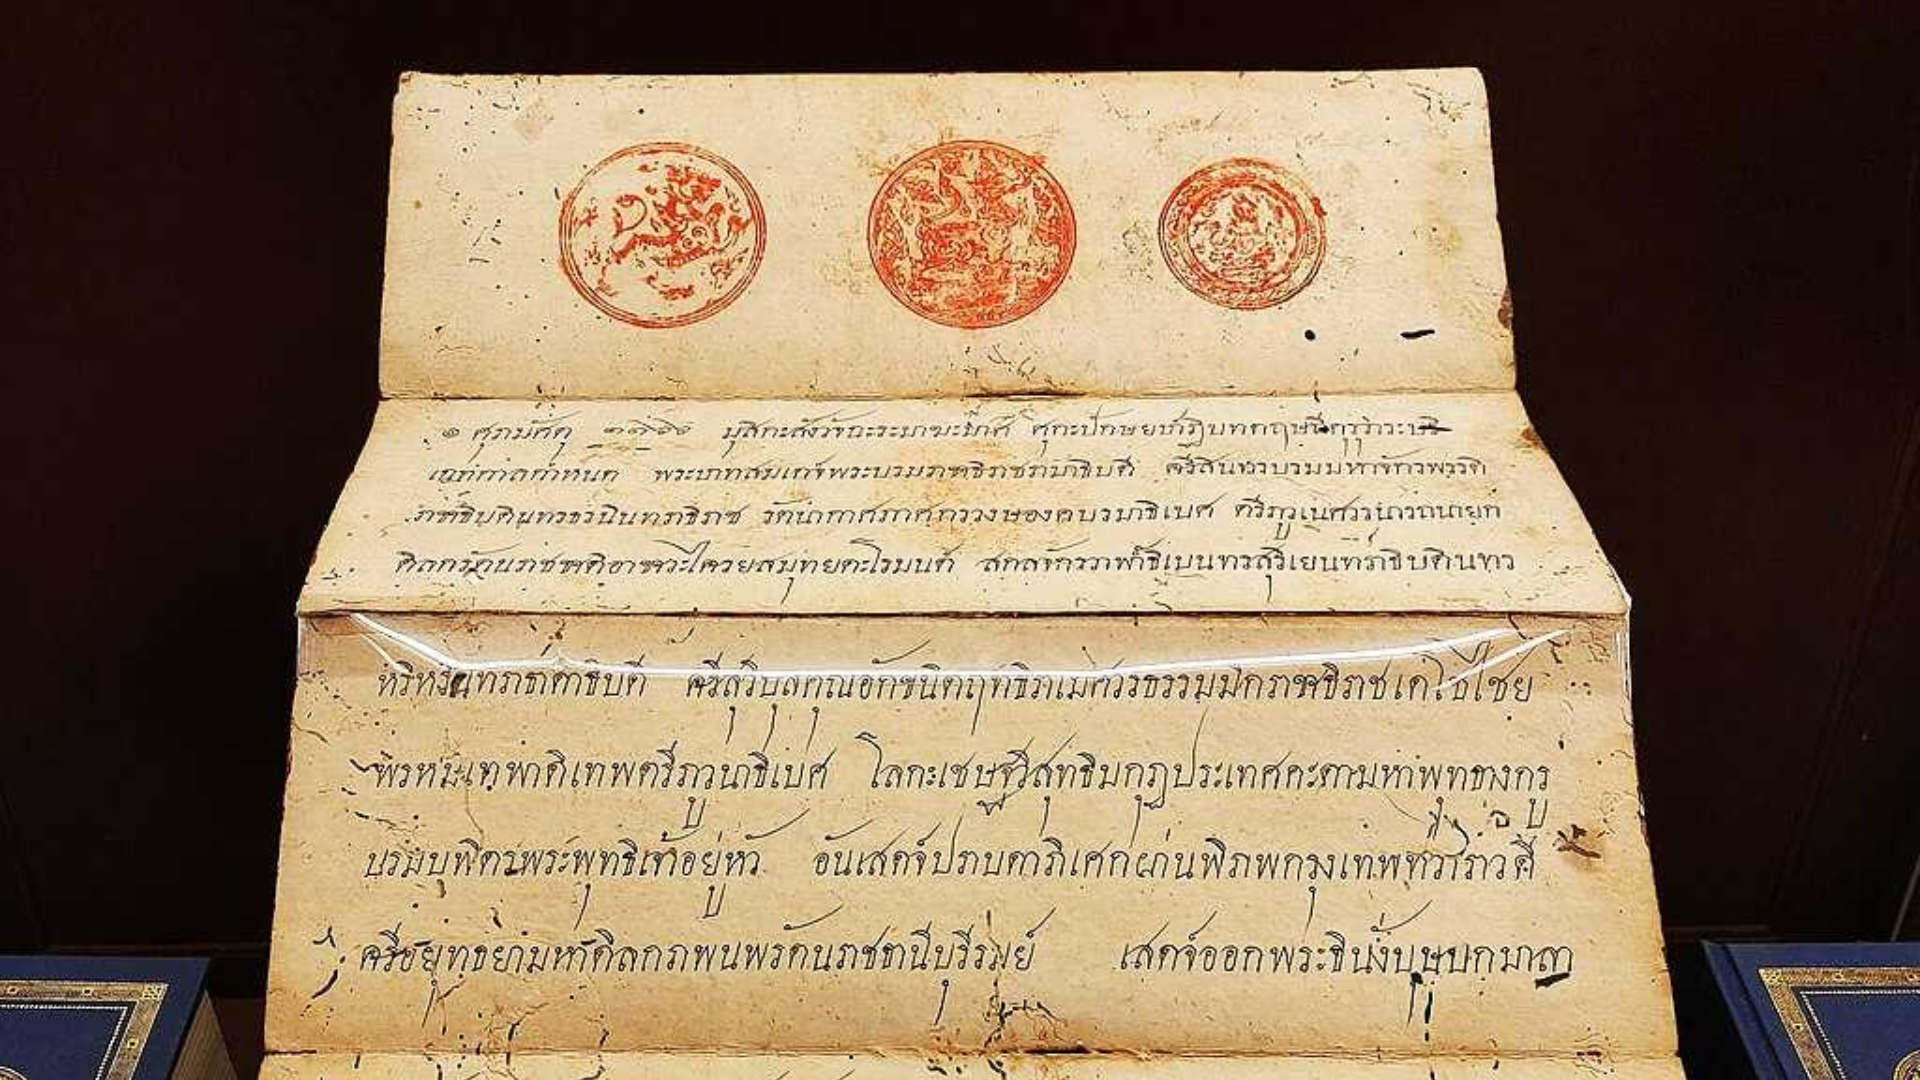 ๏ ศุภมัศดุ ๑๑๖๖ มุสิกะสังวัจฉะระมาฆะมาศ ศุกะปักษยปาฏิบทคฤษถีคุรุวาระบริ
เฉทกาลกำหนด พระบาทสมเดจ์พระบรมราชาธิราชรามาธิบดี ศรีสินทรบรมมหาจักรพรรดิ
ราชาธิบดินทรธรนินทราธิราช รัตนากาศภาศกรวงษองคบรมาธิเบศ ตรีภูวเนศวรนารถนายก
ดิลกรัตนราชชาติอาชวะไศรยสมุทยดะโรมนต์ สกลจักรวาฬาธิเบนทรสุริเยนทราธิบดินทร
หริหรินทราธาดาธิบดี ศรีสุวิบุลคุณอักขนิตฤทธิราเมศวรธรรมมิกราชาธิราชเดโชไชย
พรหมเทพาดิเทพตรีภูวนาธิเบศ โลกะเชษฐวิสุทธิมกุฏประเทศคะตามหาพุทธางกูร
บรมบุพิตรพระพุทธิเจ้าอยู่หัว อันเสดจ์ปราบดาภิเศกผ่านพิภพกรุงเทพทวาราวดี
ศรีอยุทธยามหาดิลกภพนพรัตนราชธานีบุรีรมย์ เสดจ์ออกพระธินั่งบุษบกมาลา